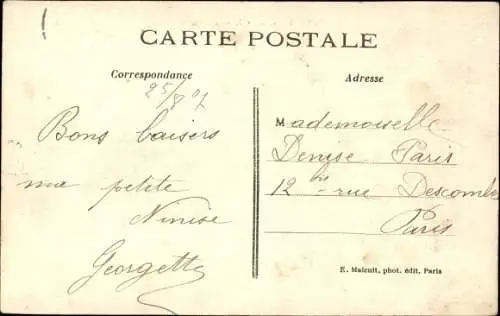 CARTE POSTALE
Correspondance
25/8 07
Bons baisers
ma petite
Ninise
Georgette
Adresse
Mademoiselle
Denise Paris
12 bis rue Descombes
Paris
E. Malcuit, phot. édit. Paris